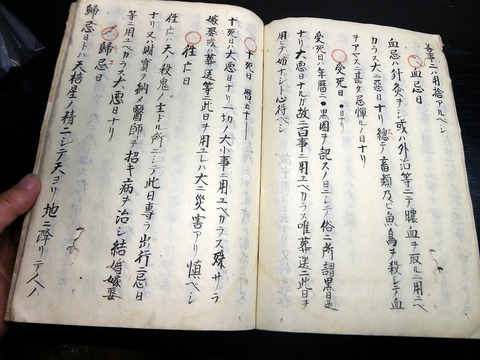 各事ニハ用捨アルベシ
血忌日
血忌ハ針灸ヲシ或ハ外治等ニテ膿血ヲ取ルニ用ユベ
カラス大ニ惡日ナリ總テノ畜類及ヒ魚鳥ヲ殺シテ血
ヲアヤス
甚タ忌憚ルノ日ナリ
受死日
●日ナリ
受死日ハ年暦ニ●黒圏ヲ記スノ日ニシテ俗ニ所謂黒日
ナリ大惡日ナルガ故ニ百事ニ用ユベカラス唯葬送ニ此日ヲ
用ヒテ
ナシト心得ベシ
十死日
十死日ハ大惡日ナリ一切ノ大小事ニ用ユベカラス殊サラ
嫁娶或ハ葬送等ニ此日ヲ用ユレハ大ニ災害アリ慎ベシ
往亡日
往亡ハ天ノ殺鬼ヲ主ドル所ニシテ此日専ラ出行ニ忌日
ナリ又ハ財寳ヲ納レ醫師ヲ招キ病ヲ治シ結婚嫁娶
等ニ用ユベカラス大惡日ナリ
歸忌日
歸忌日ハ天棓星ノ精ニシテ天ヨリ地ニ降リテ人ノ